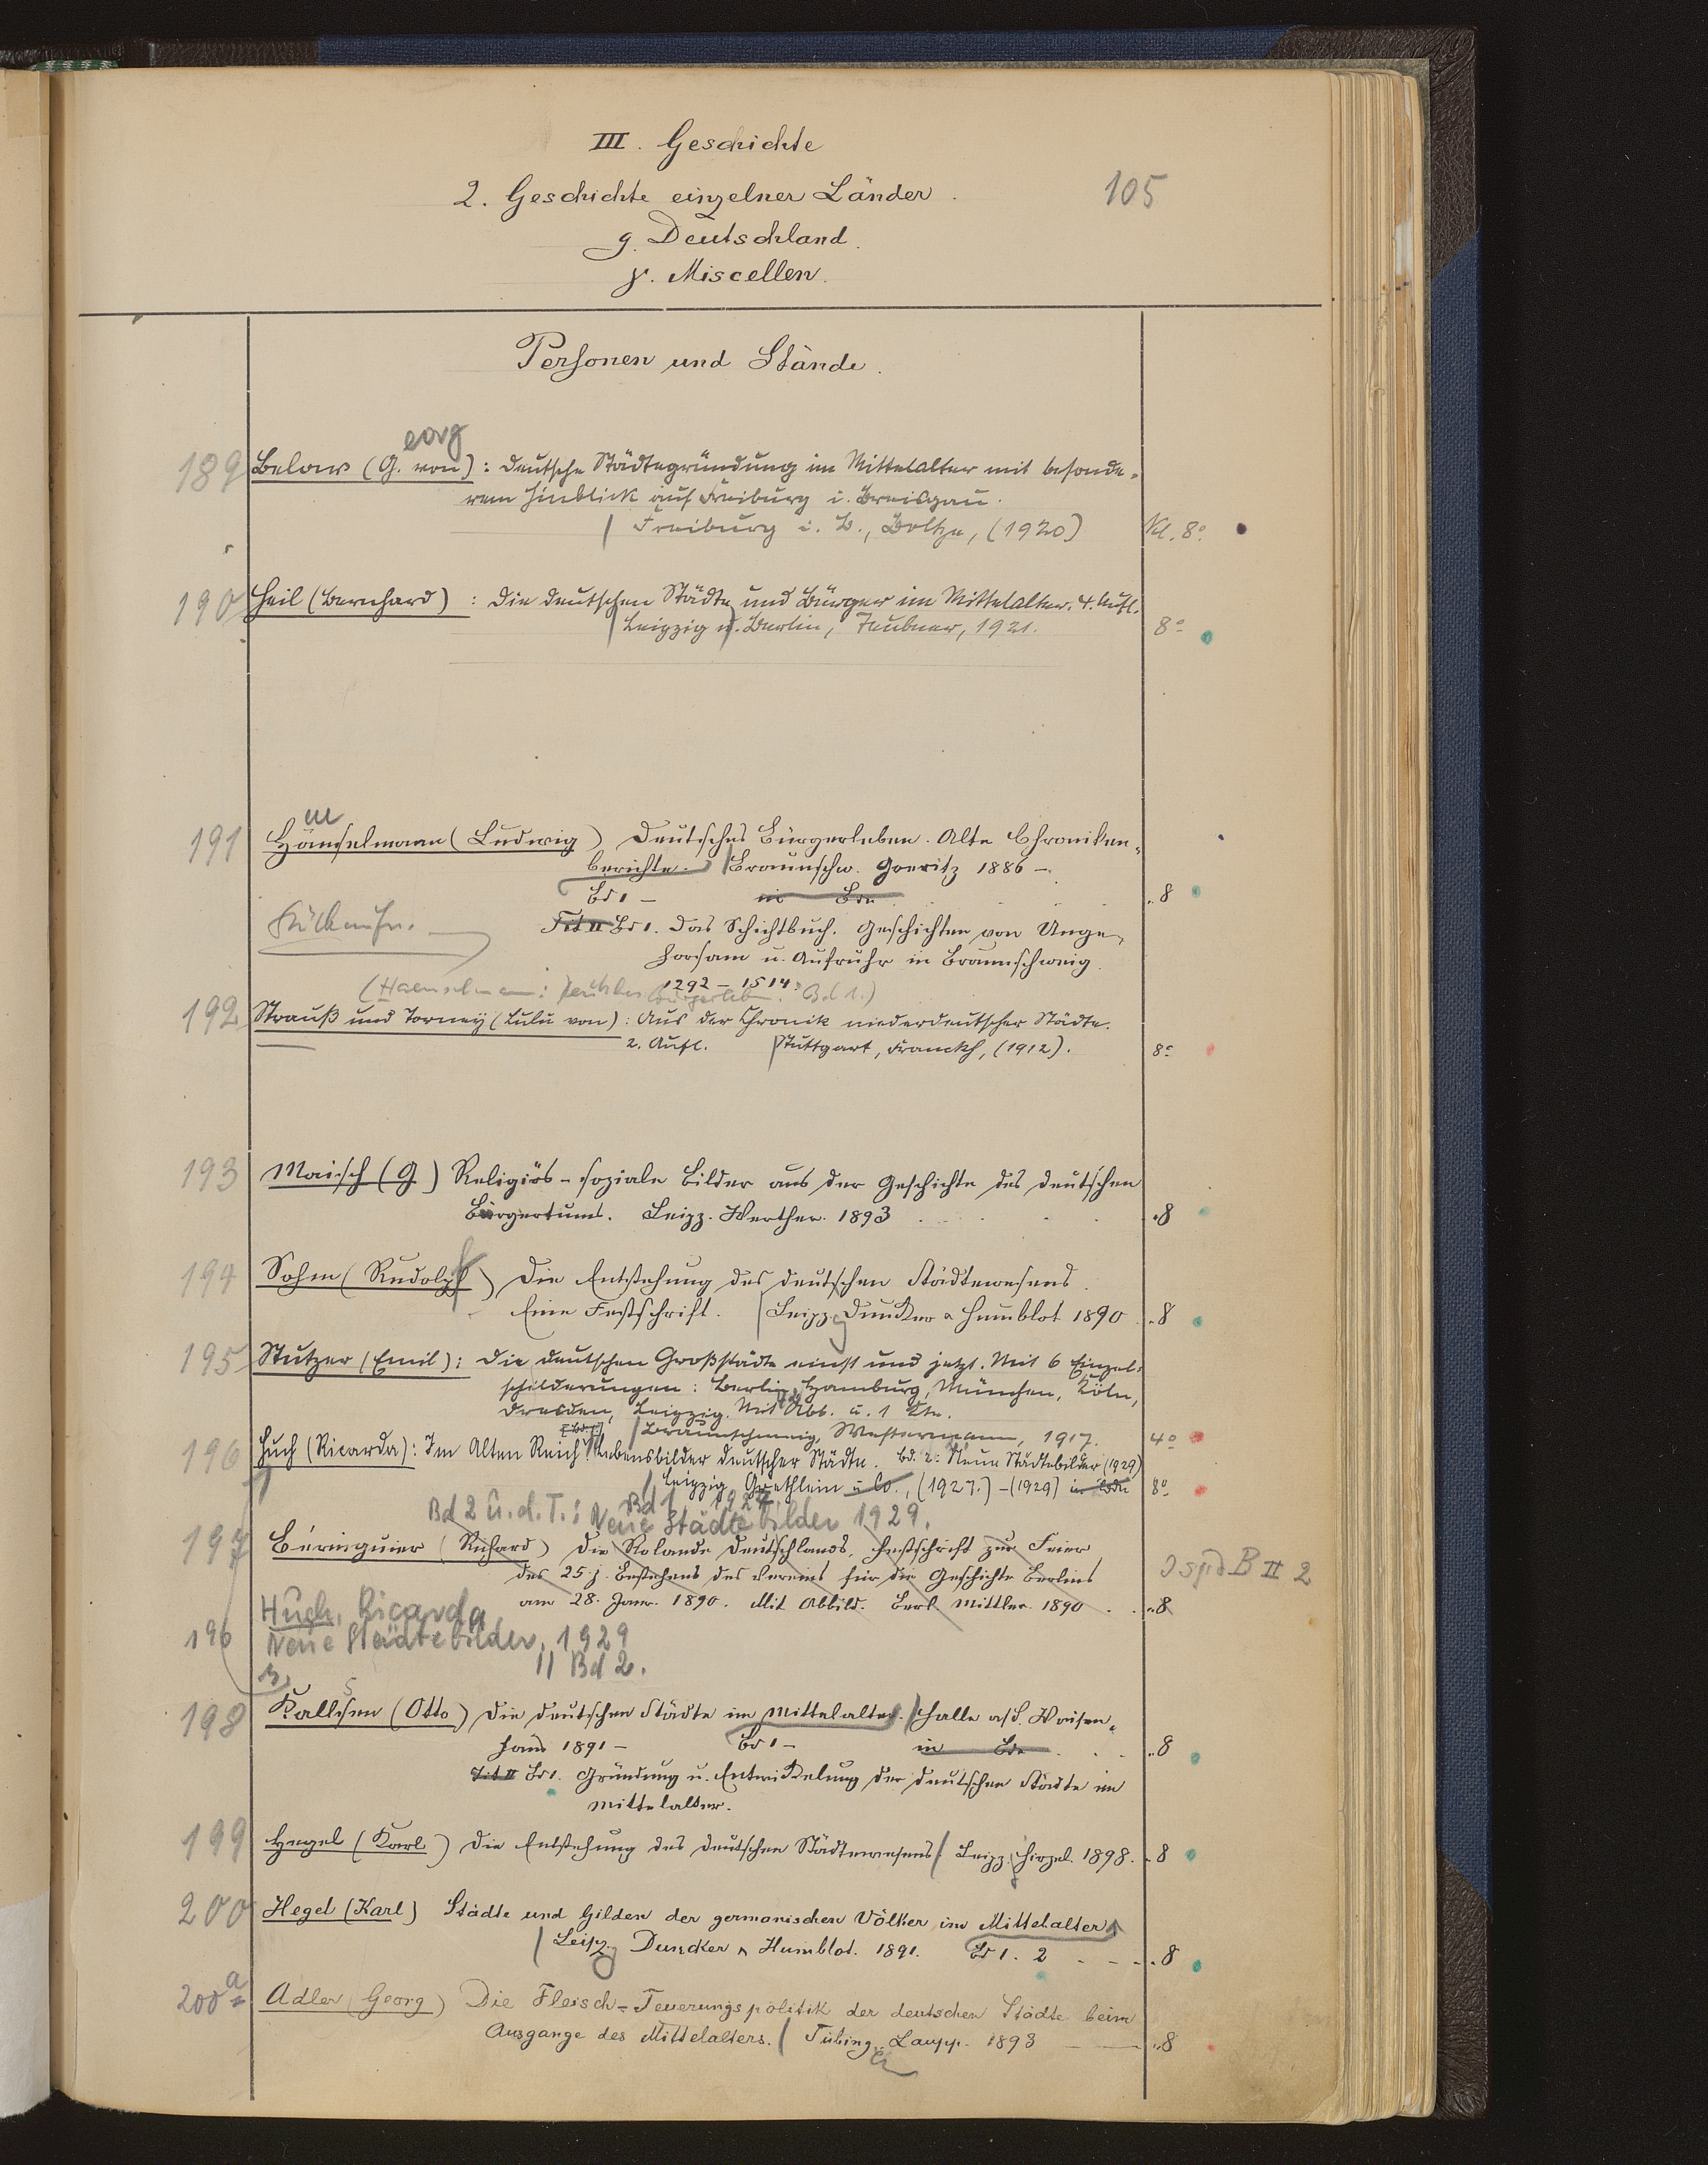 III. Geschichte
2. Geschichte einzelner Länder.
105
g. Deutschland.
γ. Miscellen.
Personen und Stände.
eorg
189 Below (G. von): Deutsche Städtegründung im Mittelalter mit besonde-
rem Hinblick auf Freiburg i. Breisgau.
Freiburg i. B., Boltze, (1920) Kl. 8°
190 Heil (Bernhard): Die deutschen Städte und Bürger im Mittelalter. 4. Aufl.
Leipzig u. Berlin, Teubner, 1921. 8°
191 Hänselmann (Ludwig) Deutsches Bürgerleben. Alte Chroniken-
berichte. Braunschw. Goeritz 1886 –
Bd 1 – in Bdn .. 8
Tit II Bd 1. Das Schichtbuch. Geschichten von Unge-
horsam u. Aufruhr in Braunschweig
1292 – 1514.
(Haenselmann: Deutsches Bürgerleben. Bd 1.)
192 Strauß und Torney (Lulu von): Aus der Chronik niederdeutscher Städte.
2. Aufl. Stuttgart, Franckh, (1912). 8°
193 Maisch (G) Religiös-soziale Bilder aus der Geschichte des deutschen
Bürgertums. Leipz. Werther. 1893 .. 8
194 Sohm (Rudolph) Die Entstehung des deutschen Städtewesens.
Eine Festschrift. Leipz. Duncker & Humblot 1890 .. 8
195 Stutzer (Emil): Die deutschen Großstädte einst und jetzt. Mit 6 Einzel-
schilderungen: Berlin, Hamburg, München, Köln,
Dresden, Leipzig. Mit Abb. u. 1 Kte.
Braunschweig, Westermann, 1917. 4°
196 Huch (Ricarda): Im Alten Reich. Lebensbilder deutscher Städte. Bd. 2: Neue Städtebilder (1929)
Leipzig, Grethlein u. Co., (1927.) – (1929) in Bdn 8°
Bd 1 1927.
Bd 2 u. d. T.: Neue Städtebilder 1929.
197 Béringuier (Richard) Die Rolande Deutschlands. Festschrift zur Feier
des 25 j. Bestehens des Vereins für die Geschichte Berlins
am 28. Janr. 1890. Mit Abbild. Berl. Mittler. 1890 .. 8
B II 2
Huch, Ricarda
196 Neue Städtebilder, 1929
11 Bd 2.
198 Kallsen (Otto) Die deutschen Städte im Mittelalter. Halle a/S. Waisen-
haus 1891 – Bd 1 – in Bdn .. 8
Tit II Bd 1. Gründung u. Entwickelung der deutschen Städte im
Mittelalter.
199 Hegel (Karl) Die Entstehung des deutschen Städtewesens Leipz. Hirzel. 1898. .. 8
200 Hegel (Karl) Städte und Gilden der germanischen Völker im Mittelalter
Leipz. Duncker & Humblot. 1891. Bd 1. 2 .. 8
200a Adler (Georg) Die Fleisch-Teuerungspolitik der deutschen Städte beim
Ausgange des Mittelalters. Tübing. Laupp. 1893 .. 8